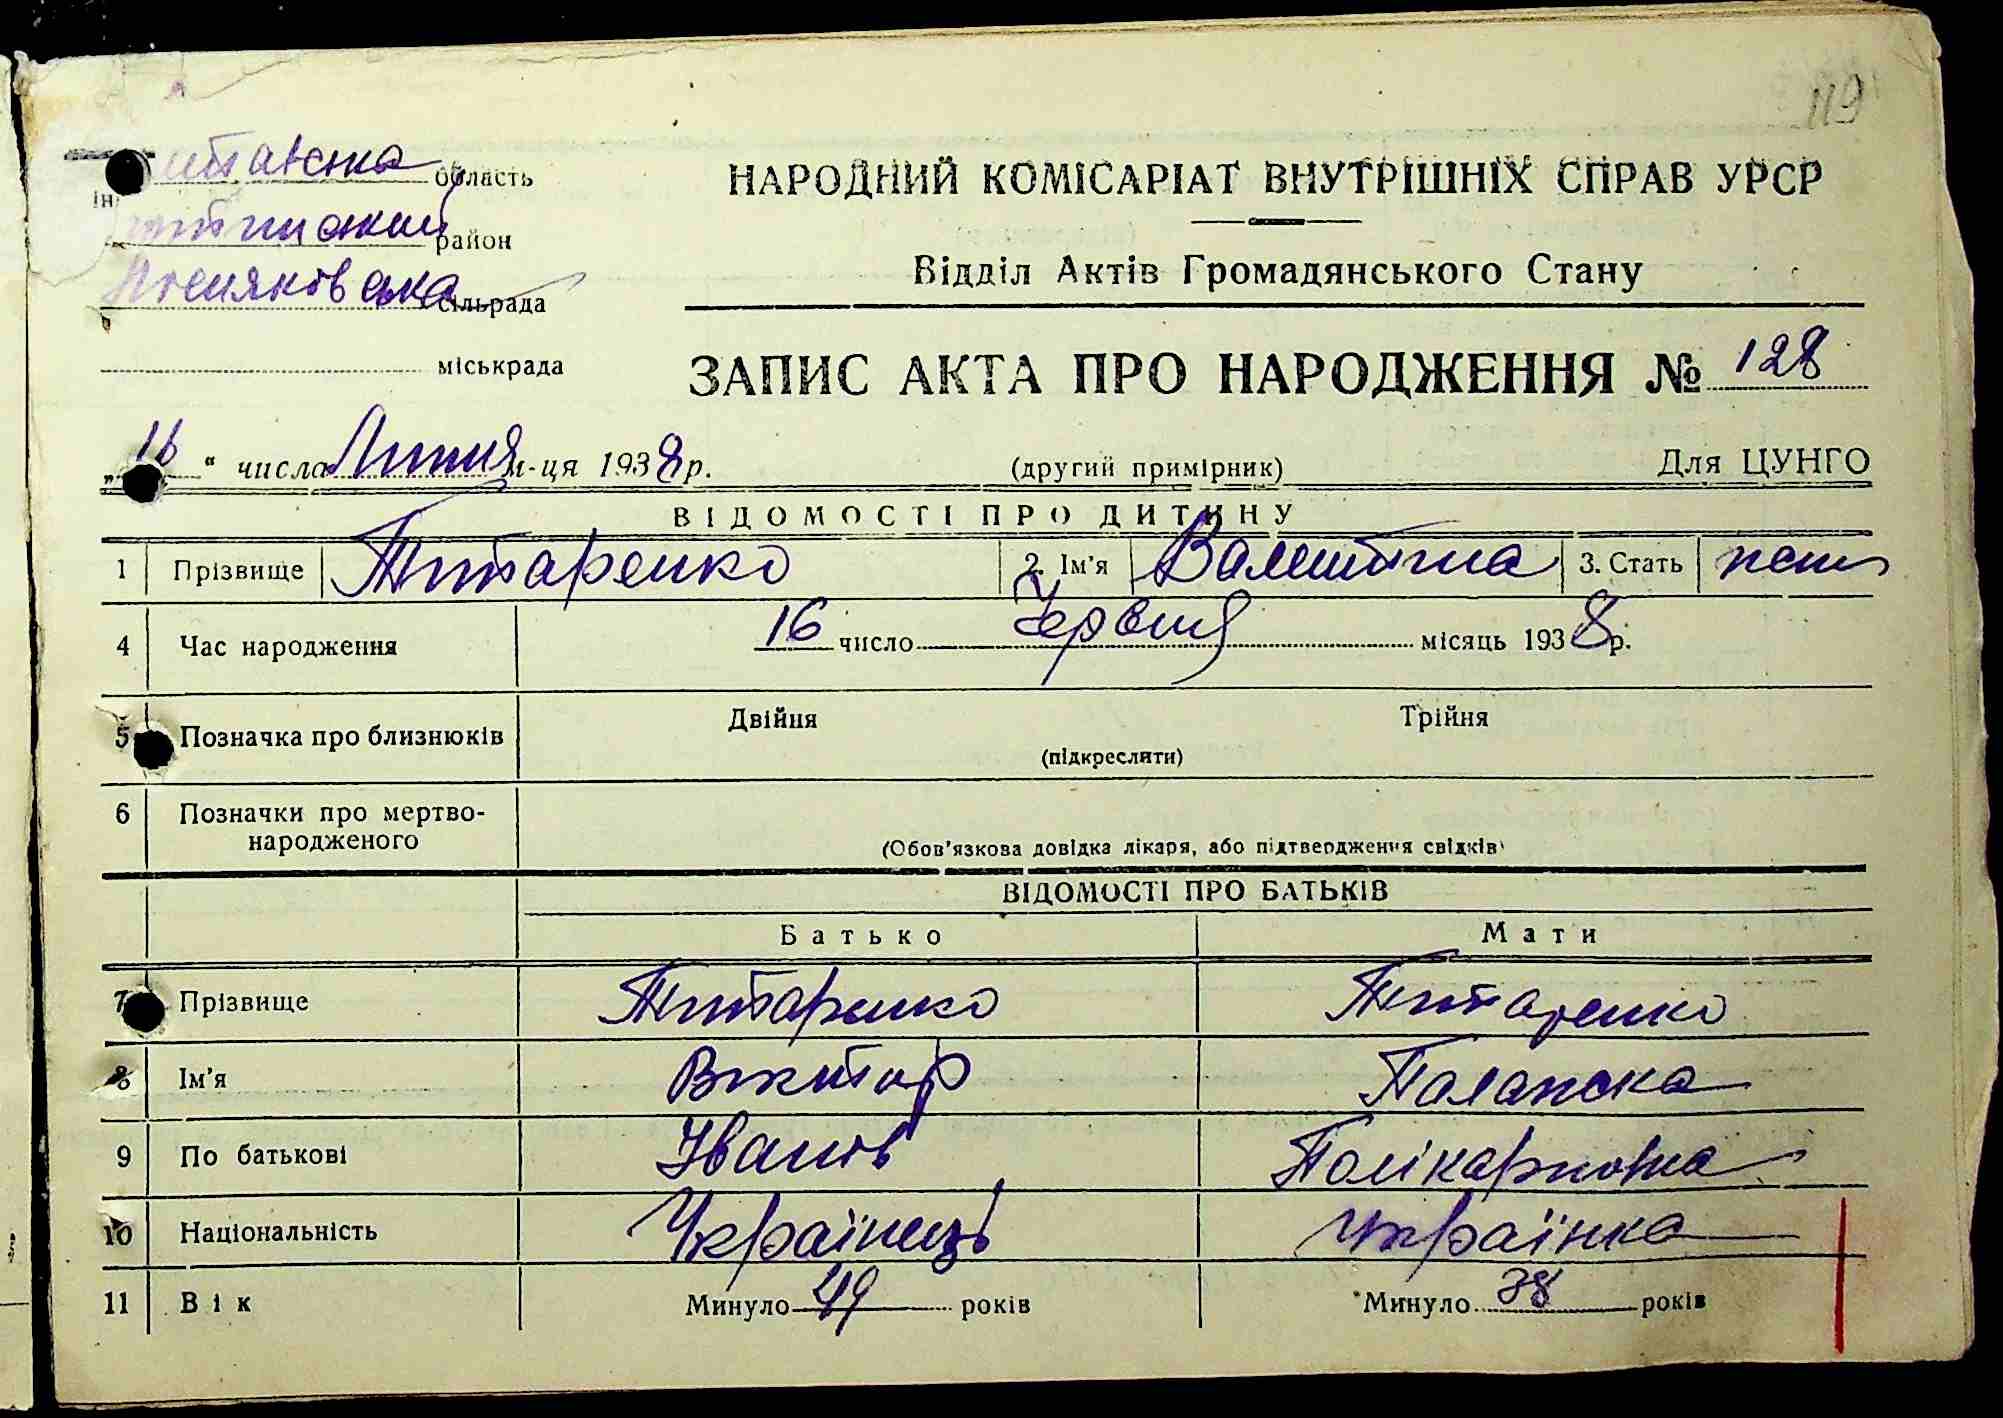 119
область
НАРОДНИЙ КОМІСАРІАТ ВНУТРІШНІХ СПРАВ УРСР
район
Відділ Актів Громадянського Стану
сільрада
міськрада
ЗАПИС АКТА ПРО НАРОДЖЕННЯ № 128
„16“ числа Липня м-ця 1938 р. (другий примірник) Для ЦУНГО
ВІДОМОСТІ ПРО ДИТИНУ
1 Прізвище Титаренко 2. Ім'я Валентина 3. Стать жен
4 Час народження 16 число Червня місяць 1938 р.
5 Позначка про близнюків Двійня Трійня
(підкреслити)
6 Позначки про мертво-
народженого
(Обов'язкова довідка лікаря, або підтвердження свідків)
ВІДОМОСТІ ПРО БАТЬКІВ
Батько Мати
7 Прізвище Титаренко Титаренко
8 Ім'я Віктор Палажка
9 По батькові Іванов Полікарповна
10 Національність Українець Українка
11 Вік Минуло 49 років Минуло 38 років